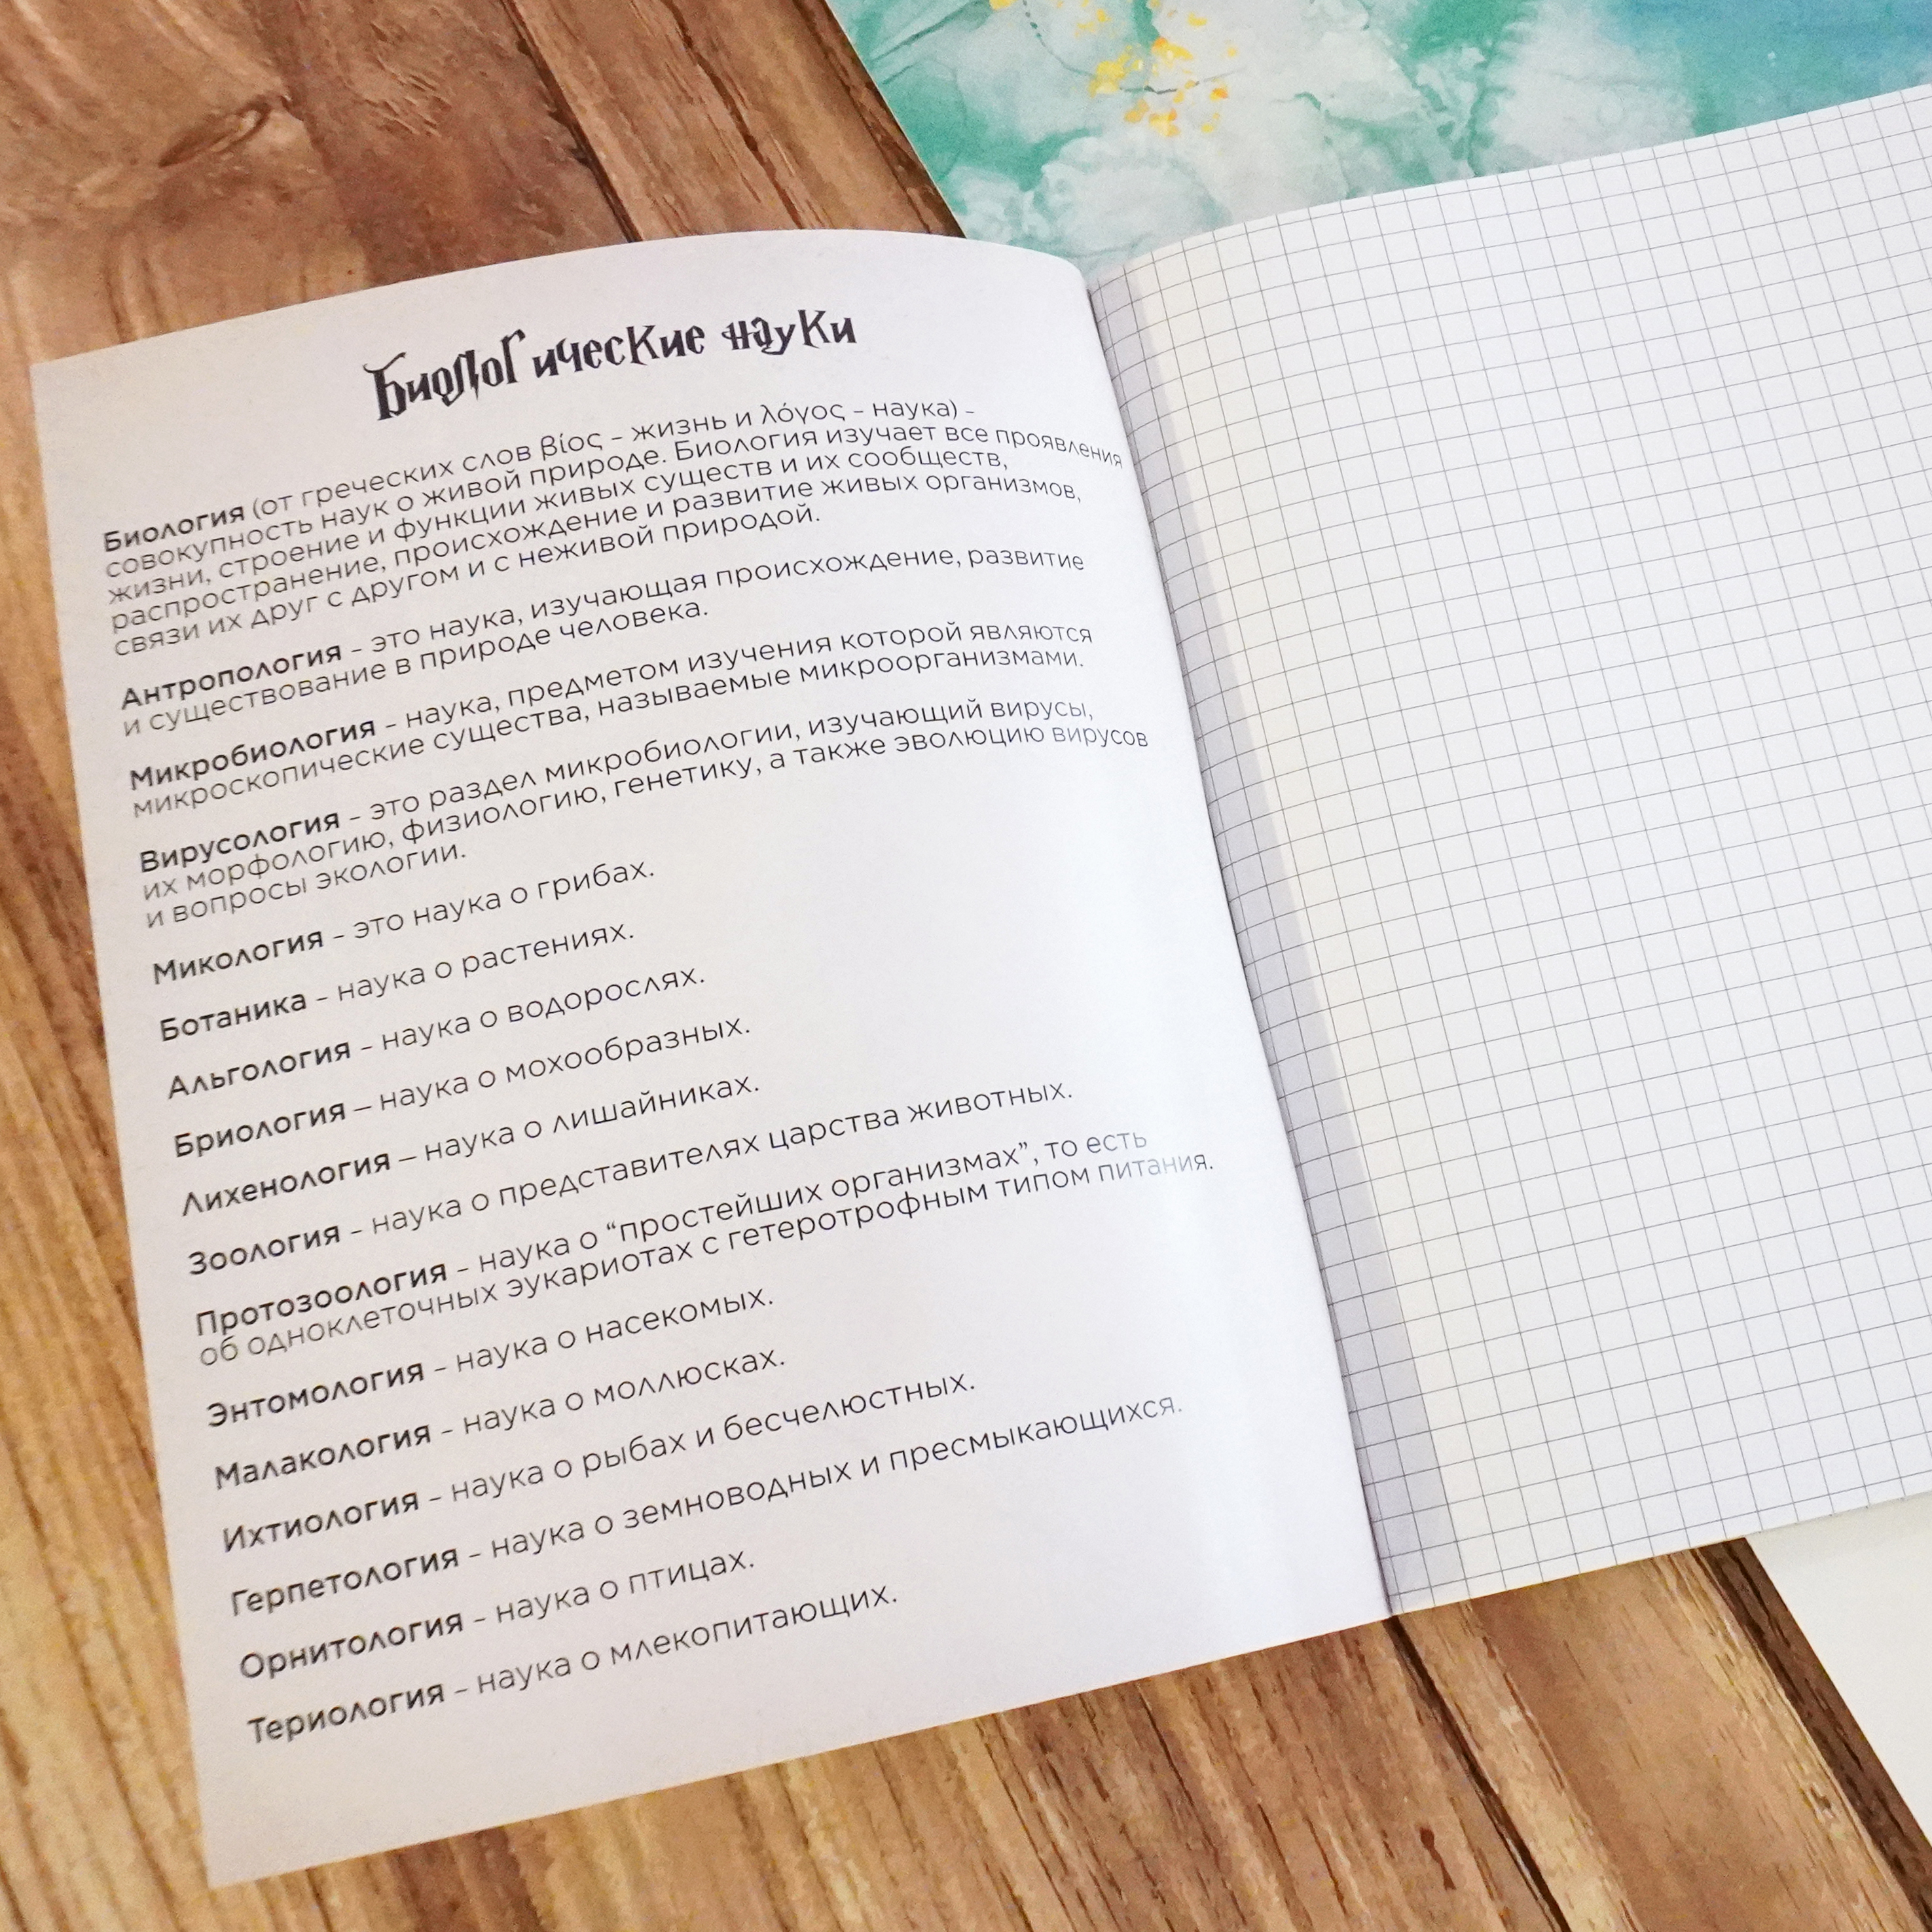 Биологические науки
Биология (от греческих слов βίος - жизнь и λόγος - наука) -
совокупность наук о живой природе. Биология изучает все проявления
жизни, строение и функции живых существ и их сообществ,
распространение, происхождение и развитие живых организмов,
связи их друг с другом и с неживой природой.
Антропология - это наука, изучающая происхождение, развитие
и существование в природе человека.
Микробиология - наука, предметом изучения которой являются
микроскопические существа, называемые микроорганизмами.
Вирусология - это раздел микробиологии, изучающий вирусы,
их морфологию, физиологию, генетику, а также эволюцию вирусов
и вопросы экологии.
Микология - это наука о грибах.
Ботаника - наука о растениях.
Альгология - наука о водорослях.
Бриология – наука о мохообразных.
Лихенология – наука о лишайниках.
Зоология - наука о представителях царства животных.
Протозоология - наука о “простейших организмах”, то есть
об одноклеточных эукариотах с гетеротрофным типом питания.
Энтомология - наука о насекомых.
Малакология - наука о моллюсках.
Ихтиология - наука о рыбах и бесчелюстных.
Герпетология - наука о земноводных и пресмыкающихся.
Орнитология - наука о птицах.
Териология - наука о млекопитающих.